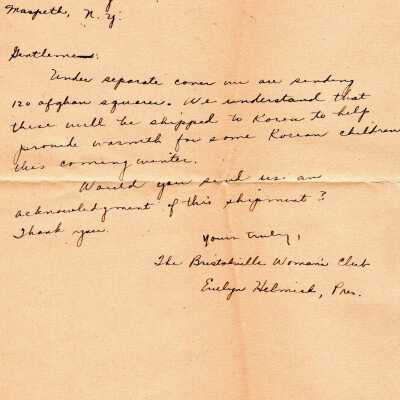 Maspeth, N.Y.
Gentlemen:
Under separate cover we are sending
120 afghan squares. We understand that
these will be shipped to Korea to help
provide warmth for some Korean children
this coming winter.
Would you send us an
acknowledgment of this shipment?
Thank you.
Yours truly,
The Bristolville Woman's Club
Evelyn Helmick, Pres.